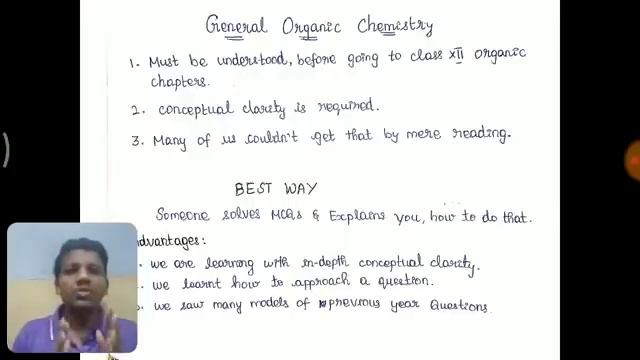 General Organic Chemistry
1. Must be understood, before going to class XII organic
chapters.
2. conceptual clarity is required.
3. Many of us couldn't get that by mere reading.
BEST WAY
Someone solves MCQs & Explains you, how to do that.
dvantages:
we are learning with in-depth conceptual clarity.
we learnt how to approach a question.
we saw many models of previous year Questions.